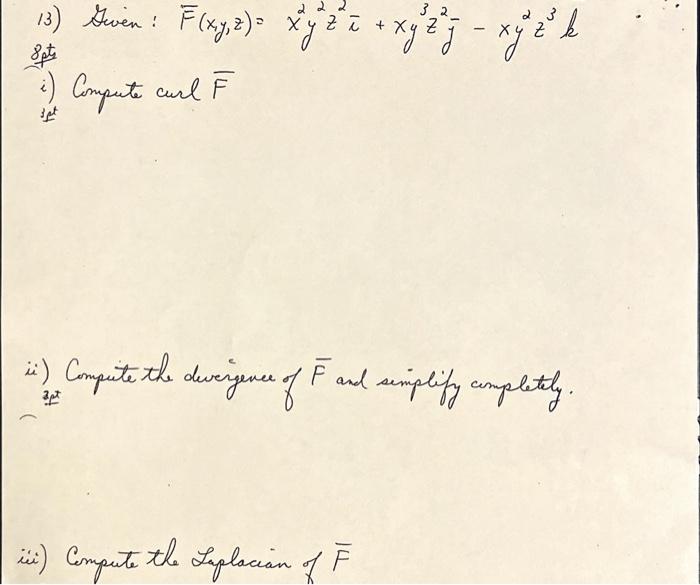 13) Given: F̅(x,y,z) = x²y²z² i̅ + xy³z² j̅ - xy²z³ k
8pts
i) Compute curl F̅
3pt
ii) Compute the divergence of F̅ and simplify completely.
3pt
iii) Compute the Laplacian of F̅